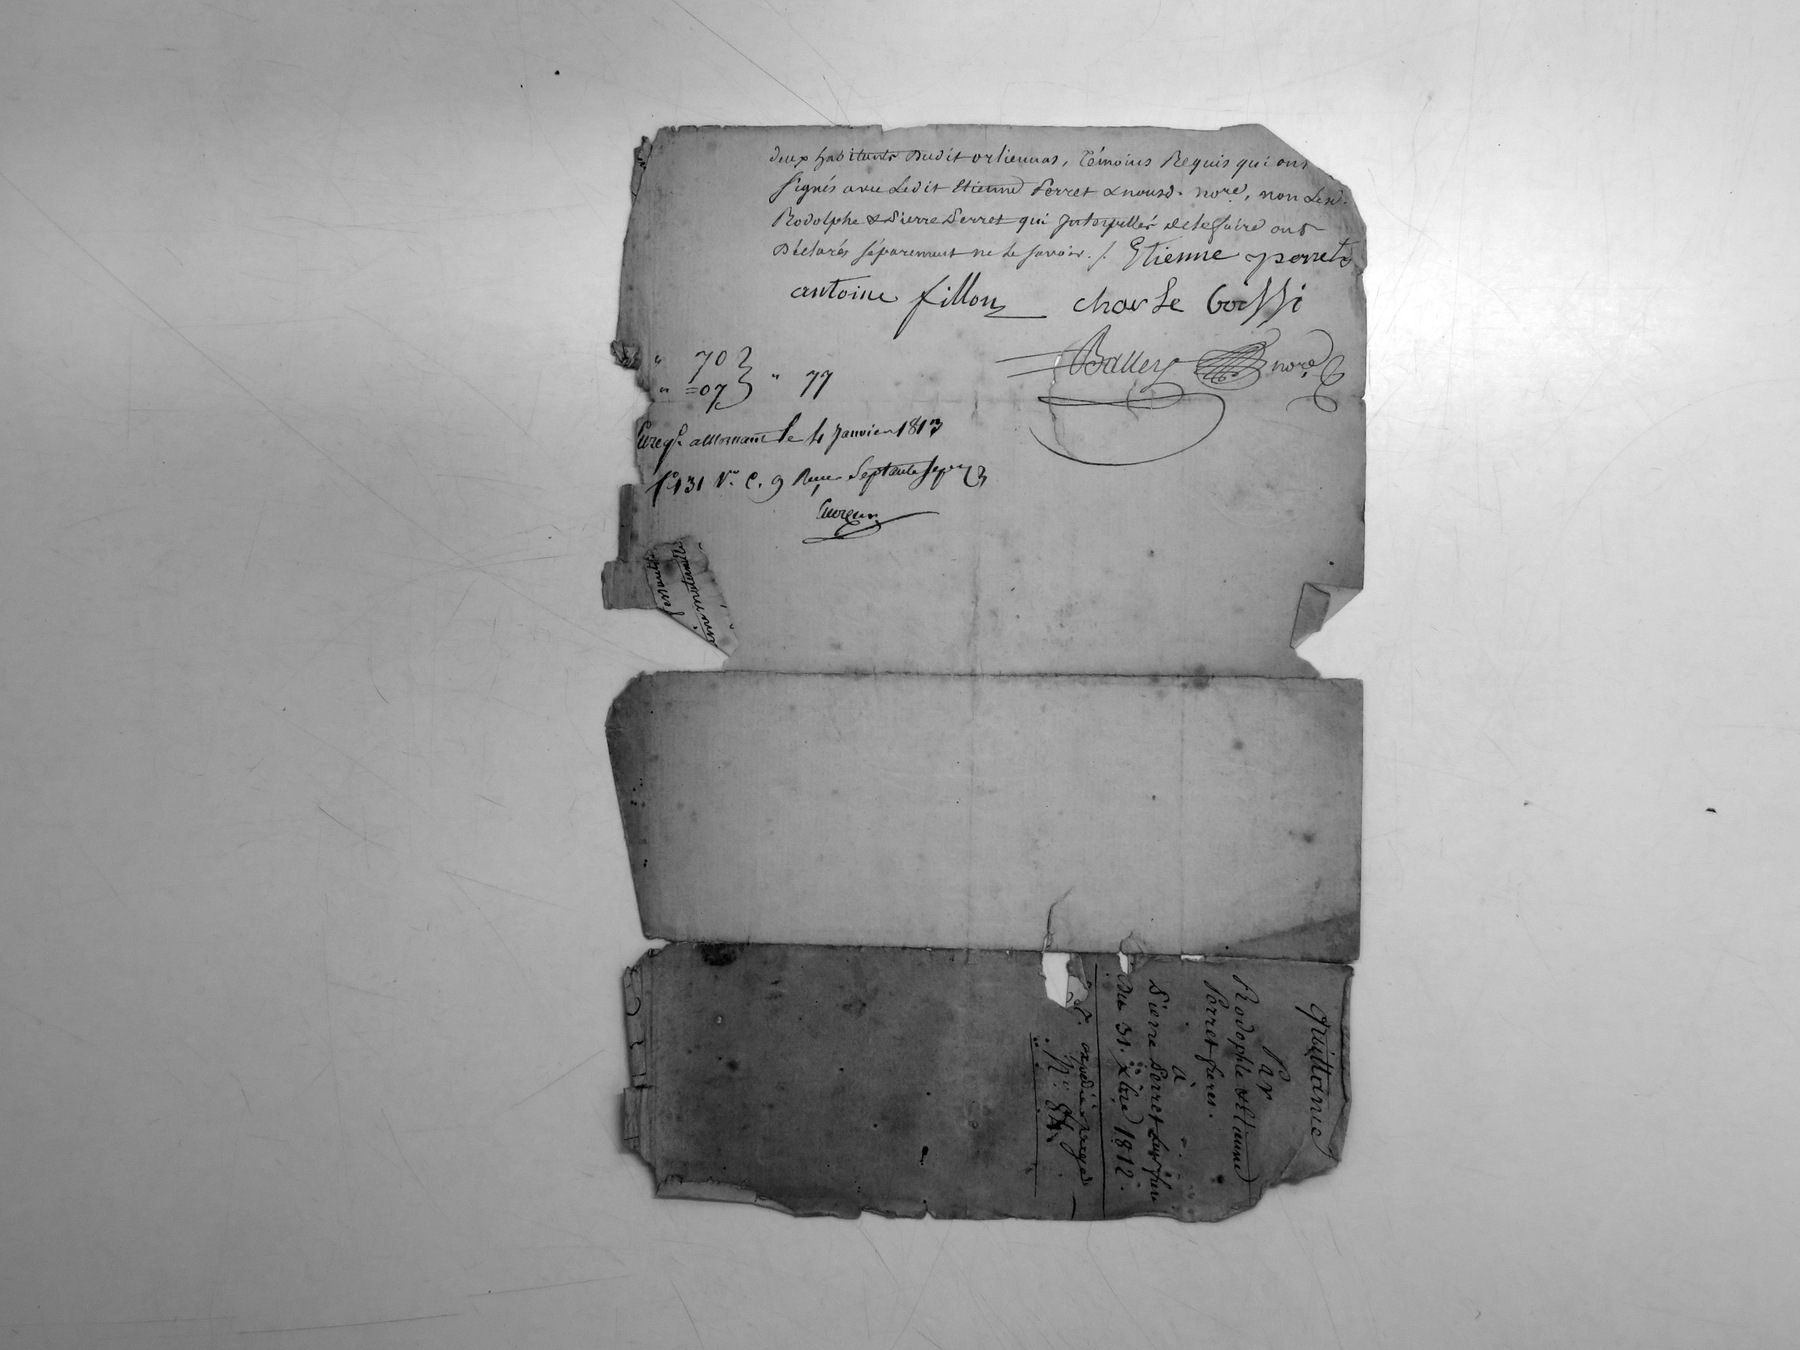 deux habitants dudit orliennas, Témoins Requis qui ont
signés avec Ledit Etienne Perret & nousd. nore, non Lesd.
Rodolphe & Pierre Perret qui Interpellés de le faire ont
Déclarés séparement ne le savoir ./. Etienne perret
antoine fillon charle Goffi
Ballet nore
" 70
" =07 " 77
Enregé. a Mornant le 4 Janvier 1813
fo 131 Vo C. 9 Reçu Septante sept
Quittance
Par
Rodophle & Etienne
Perret freres.
à
Pierre Perret Leur frere
Du 31. Xbre 1812.
expédiée
No. 84